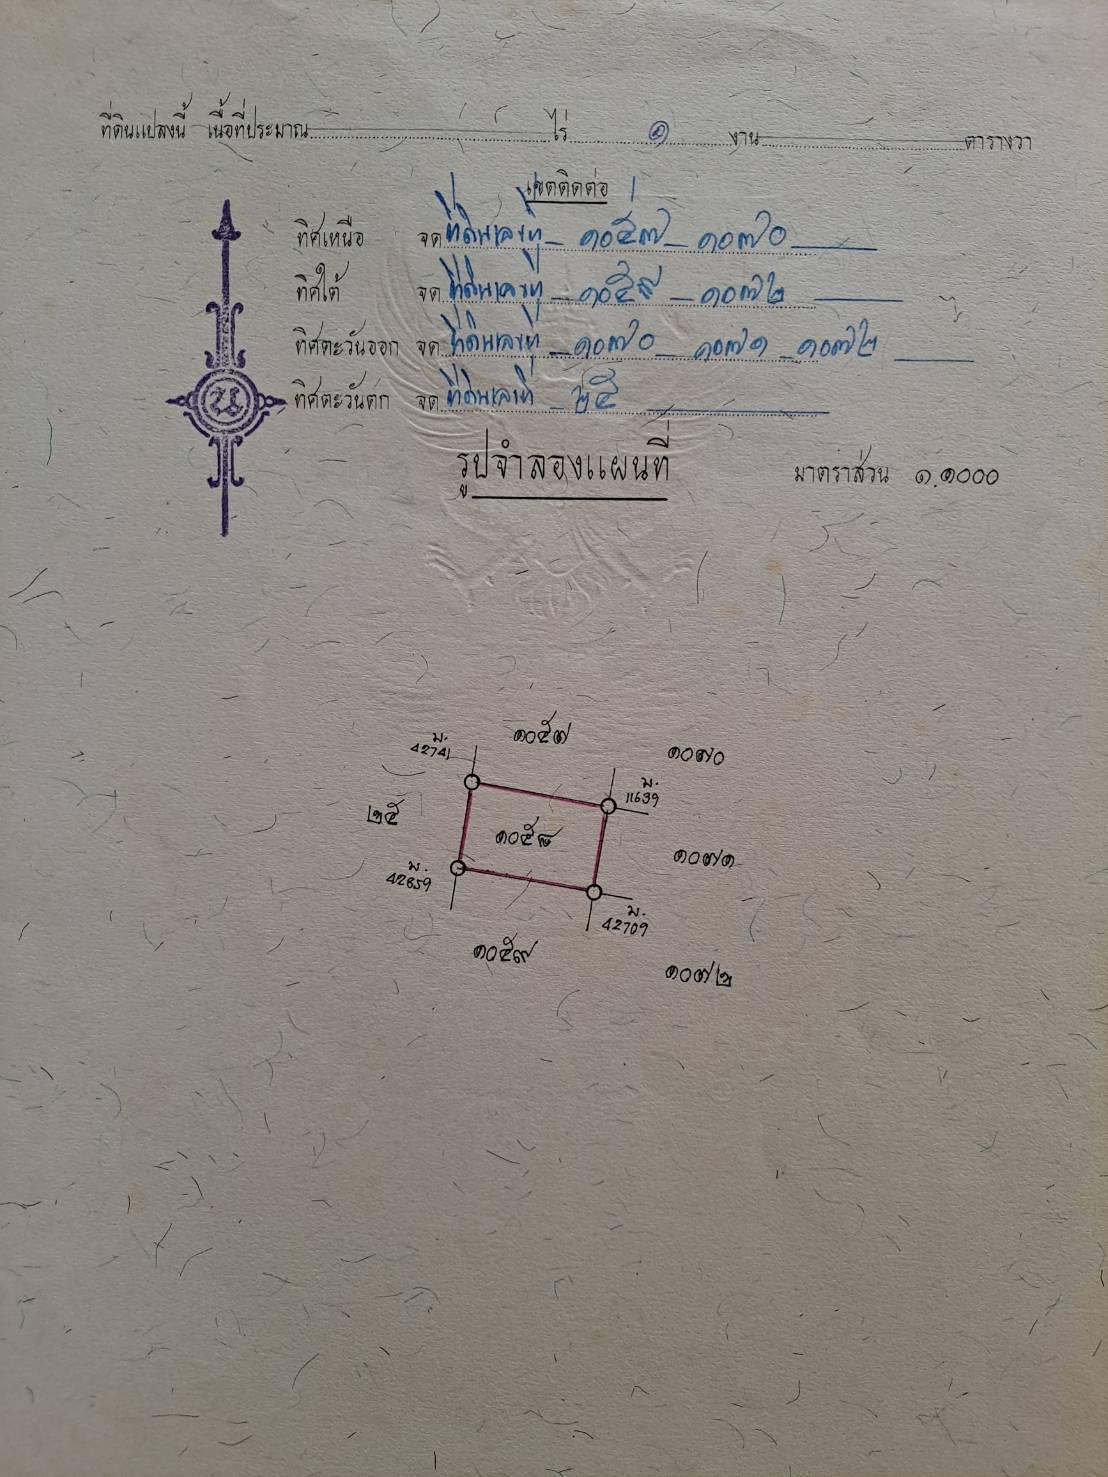 ที่ดินแปลงนี้ เนื้อที่ประมาณ ไร่ ๑ งาน ตารางวา
เขตติดต่อ
ทิศเหนือ จด ที่ดินเลขที่ - ๑๐๕๗ - ๑๐๗๐
ทิศใต้ จด ที่ดินเลขที่ - ๑๐๕๙ - ๑๐๗๒
ทิศตะวันออก จด ที่ดินเลขที่ - ๑๐๗๐ - ๑๐๗๑ - ๑๐๗๒
ทิศตะวันตก จด ที่ดินเลขที่ - ๒๕
น
รูปจำลองแผนที่
มาตราส่วน ๑.๑๐๐๐
๑๐๕๗
ม.
42741
๑๐๗๐
ม.
11639
๒๕
๑๐๕๘
๑๐๗๑
ม.
42659
ม.
42709
๑๐๕๙
๑๐๗๒